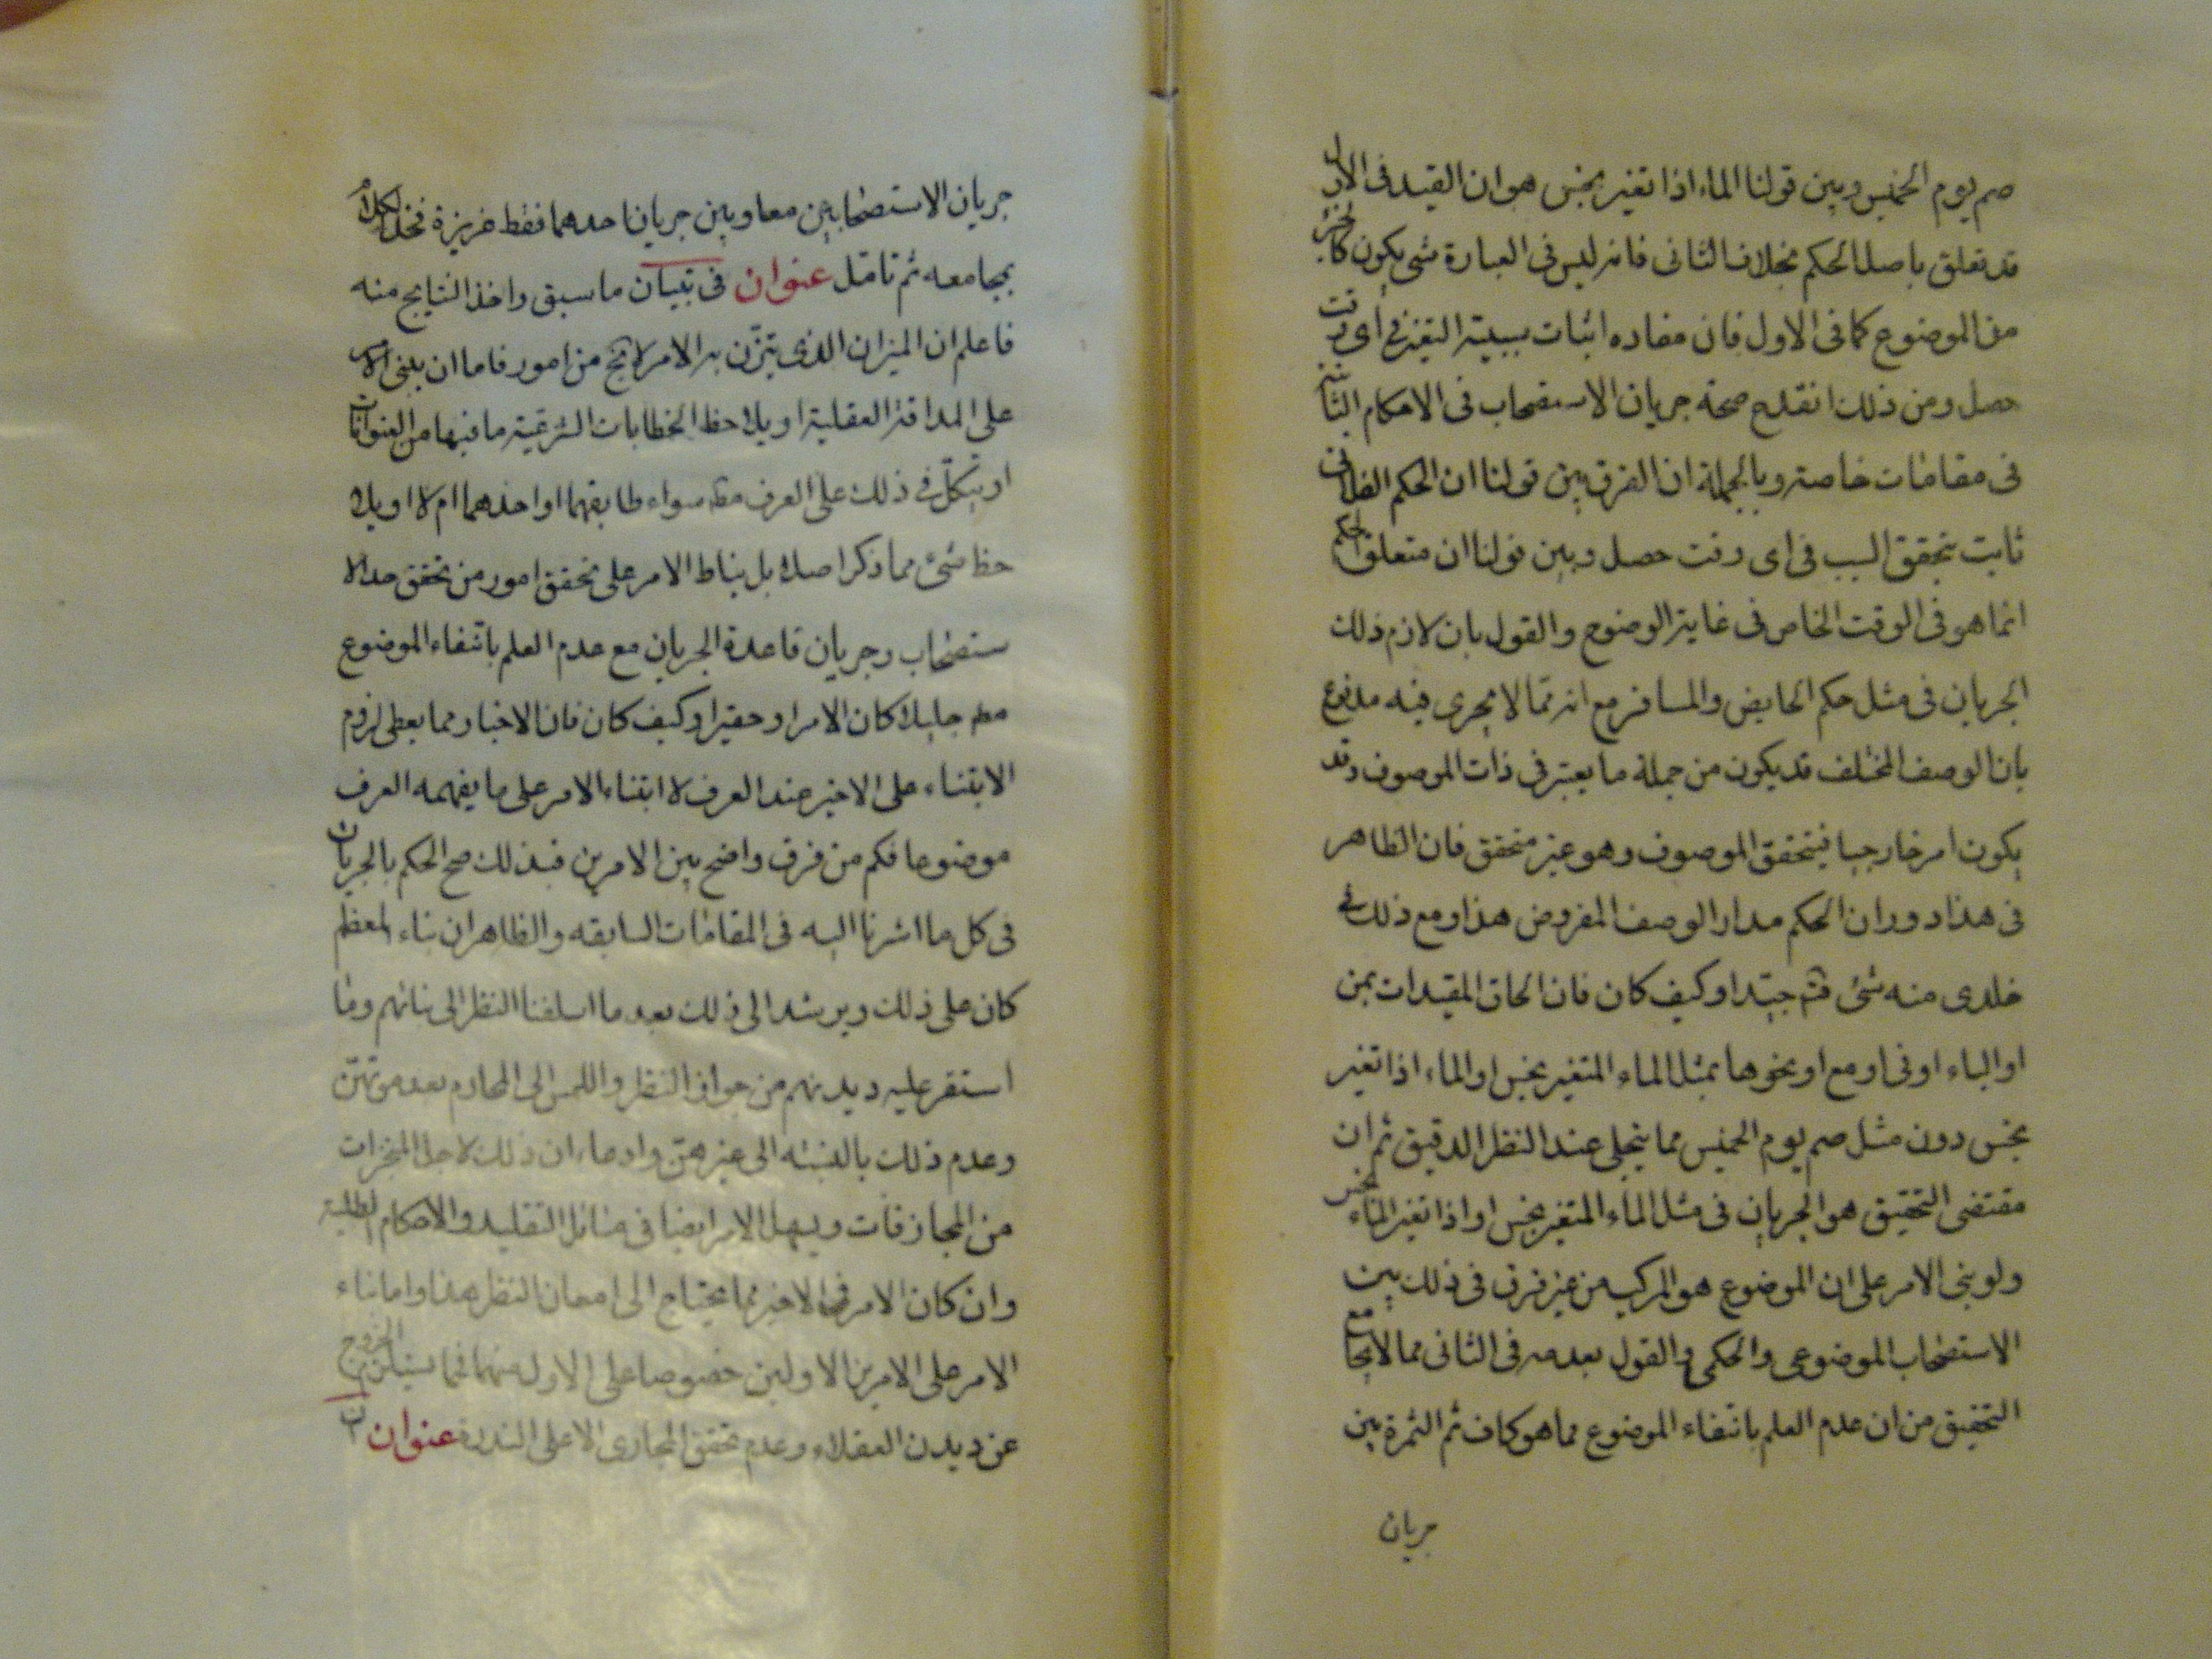 صم يوم الخميس وبين قولنا الماء اذا تغير نجس هو ان القيد فى الاول
قد تعلق باصل الحكم بخلاف الثانى فانه ليس فى العبارة شئ يكون كالجزء
من الموضوع كما فى الاول فان مفاده اثبات سببية التغير فى اى وقت
حصل ومن ذلك انقدح صحة جريان الاستصحاب فى الاحكام
فى مقامات خاصة وبالجملة ان الفرق بين قولنا ان الحكم الفلانى
ثابت بتحقق السبب فى اى وقت حصل وبين قولنا ان متعلق الحكم
انما هو فى الوقت الخاص فى غاية الوضوح والقول بان لازم ذلك
الجريان فى مثل حكم الحايض والمسافر مع انه مما لا يجرى فيه مدفوع
بان الوصف المختلف قد يكون من جملة ما يعتبر فى ذات الموصوف وقد
يكون امر خارجيا فيتحقق الموصوف وهو غير متحقق فان الظاهر
فى هذا دوران الحكم مدار الوصف المفروض هذا ومع ذلك فى
خلدى منه شئ جيدا وكيف كان فان الحاق المقيدات بمن
او الباء او فى او مع او نحوها بمثل الماء المتغير نجس او الماء اذا تغير
نجس دون مثل صم يوم الخميس مما ينجلى عند النظر الدقيق ثم ان
مقتضى التحقيق هو الجريان فى مثل الماء المتغير نجس او اذا تغير الماء نجس
ولو بنى الامر على ان الموضوع هو المركب من غير فرق فى ذلك بين
الاستصحاب الموضوعى والحكمى والقول بعدمه فى الثانى مما لا يجامع
التحقيق من ان عدم العلم بانتفاء الموضوع مما هو كاف ثم الثمرة بين
جريان
جريان الاستصحابين معا وبين جريان احدهما فقط غريزة فخذ الكلام
بمجامعه ثم تامل عنوان فى تبيان ما سبق واخذ النتايج منه
فاعلم ان الميزان الذى يتزن به الامر لا يخ من امور فاما ان يبنى الامر
على المداقة العقلية او يلاحظ الخطابات الشرعية ما فيها من العنوانات
او يتكل فى ذلك على العرف مط سواء طابقهما او احدهما ام لا او يلا
حظ شئ مما ذكر اصلا بل يناط الامر على تحقق امور من تحقق حد الا
ستصحاب وجريان قاعدة الجريان مع عدم العلم بانتفاء الموضوع
مط جليلا كان الامر او حقيرا وكيف كان فان الاخبار مما يعطى لزوم
الابتناء على الاخير عند العرف لا ابتناء الامر على ما يفهمه العرف
موضوعا فكم من فرق واضح بين الامرين فبذلك صح الحكم بالجريان
فى كل ما اشرنا اليه فى المقامات السابقه والظاهر ان بناء المعظم
كان على ذلك ويرشد الى ذلك بعد ما اسلفنا النظر الى بنائهم وما
استقر عليه ديدنهم من جواز النظر واللمس الى المحارم بعد موتهن
وعدم ذلك بالنسبه الى غيرهن وادعاء ان ذلك لاجل
من المجازفات ويسهل الامر ايضا فى مسائل التقليد والاحكام
وان كان الامر فى الاخير مما يحتاج الى امعان النظر هذا واما بناء
الامر على الامرين الاولين خصوصا على الاول منهما فمما يستلزم الخروج
عن ديدن العقلاء وعدم تحقق المجارى الا على الندرة عنوان